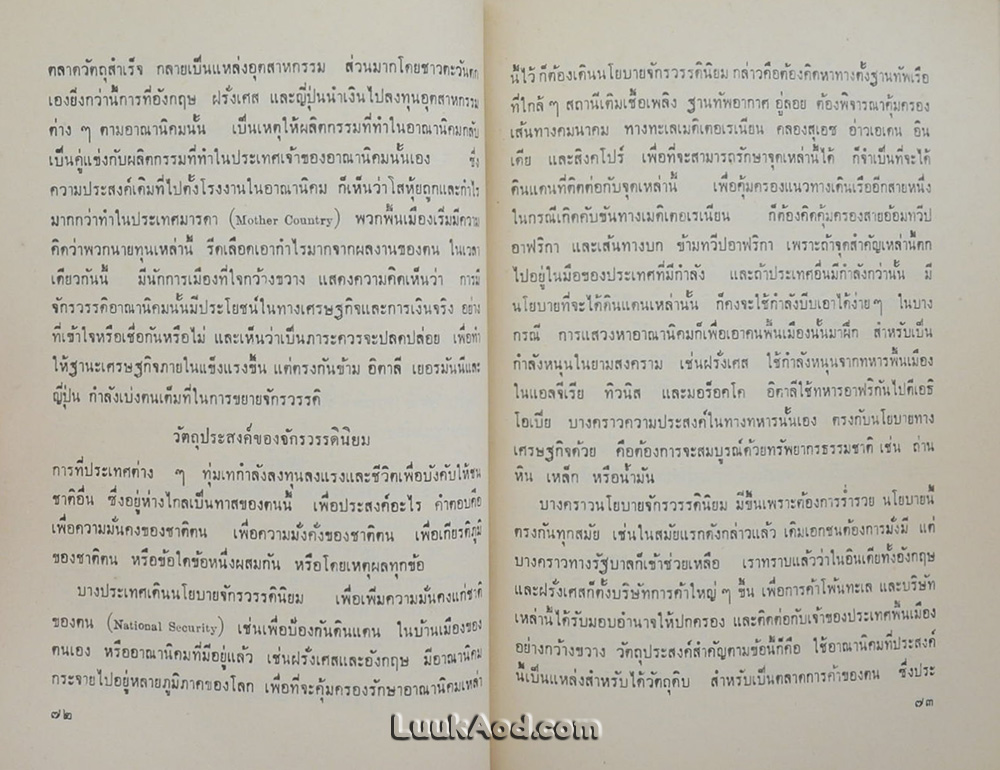 ตลาดวัตถุสำเร็จ กลายเป็นแหล่งอุตสาหกรรม ส่วนมากโดยชาวตะวันตก
เองยิ่งกว่านี้การที่อังกฤษ ฝรั่งเศส และญี่ปุ่นนำเงินไปลงทุนอุตสาหกรรม
ต่าง ๆ ตามอาณานิคมนั้น เป็นเหตุให้ผลิตกรรมที่ทำในอาณานิคมกลับ
เป็นคู่แข่งกับผลิตกรรมที่ทำในประเทศเจ้าของอาณานิคมนั้นเอง ซึ่ง
ความประสงค์เดิมที่ไปตั้งโรงงานในอาณานิคม ก็เห็นว่าโสหุ้ยถูกและกำไร
มากกว่าทำในประเทศมารดา (Mother Country) พวกพื้นเมืองเริ่มมีความ
คิดว่าพวกนายทุนเหล่านี้ รีดเลือดเอากำไรมากจากผลงานของตน ในเวลา
เดียวกันนี้ มีนักการเมืองที่ใจกว้างขวาง แสดงความคิดเห็นว่า การมี
จักรวรรดิอาณานิคมนั้นมีประโยชน์ในทางเศรษฐกิจและการเงินจริง อย่าง
ที่เข้าใจหรือเชื่อกันหรือไม่ และเห็นว่าเป็นภาระควรจะปลดปล่อย เพื่อทำ
ให้ฐานะเศรษฐกิจภายในแข็งแรงขึ้น แต่ตรงกันข้าม อิตาลี เยอรมันนีและ
ญี่ปุ่น กำลังเบ่งตนเต็มที่ในการขยายจักรวรรดิ
วัตถุประสงค์ของจักรวรรดินิยม
การที่ประเทศต่าง ๆ ทุ่มเทกำลังลงทุนลงแรงและชีวิตเพื่อบังคับให้ชน
ชาติอื่น ซึ่งอยู่ห่างไกลเป็นทาสของตนนี้ เพื่อประสงค์อะไร คำตอบคือ
เพื่อความมั่นคงของชาติตน เพื่อความมั่งคั่งของชาติตน เพื่อเกียรติภูมิ
ของชาติตน หรือข้อใดข้อหนึ่งผสมกัน หรือโดยเหตุผลทุกข้อ
บางประเทศเดินนโยบายจักรวรรดินิยม เพื่อเพิ่มความมั่นคงแก่ชาติ
ของตน (National Security) เช่นเพื่อป้องกันดินแดน ในบ้านเมืองของ
ตนเอง หรืออาณานิคมที่มีอยู่แล้ว เช่นฝรั่งเศสและอังกฤษ มีอาณานิคม
กระจายไปอยู่หลายภูมิภาคของโลก เพื่อที่จะคุ้มครองรักษาอาณานิคมเหล่า
๗๒
นี้ไว้ ก็ต้องเดินนโยบายจักรวรรดินิยม กล่าวคือต้องคิดหาทางตั้งฐานทัพเรือ
ที่ใกล้ ๆ สถานีเติมเชื้อเพลิง ฐานทัพอากาศ อู่ลอย ต้องพิจารณาคุ้มครอง
เส้นทางคมนาคม ทางทะเลเมดิเตอเรเนียน คลองสุเอซ อ่าวเอเดน อิน
เดีย และสิงคโปร์ เพื่อที่จะสามารถรักษาจุดเหล่านี้ได้ ก็จำเป็นที่จะได้
ดินแดนที่ติดต่อกับจุดเหล่านี้ เพื่อคุ้มครองแนวทางเดินเรืออีกสายหนึ่ง
ในกรณีเกิดคับขันทางเมดิเตอเรเนียน ก็ต้องคิดคุ้มครองสายอ้อมทวีป
อาฟริกา และเส้นทางบก ข้ามทวีปอาฟริกา เพราะถ้าจุดสำคัญเหล่านี้ตก
ไปอยู่ในมือของประเทศที่มีกำลัง และถ้าประเทศอื่นมีกำลังกว่านั้น มี
นโยบายที่จะได้ดินแดนเหล่านั้น ก็คงจะใช้กำลังบีบเอาได้ง่ายๆ ในบาง
กรณี การแสวงหาอาณานิคมก็เพื่อเอาคนพื้นเมืองนั้นมาฝึก สำหรับเป็น
กำลังหนุนในยามสงคราม เช่นฝรั่งเศส ใช้กำลังหนุนจากทหารพื้นเมือง
ในแอลจีเรีย ทิวนิส และมอร็อคโค อิตาลีใช้ทหารอาฟริกันไปตีเอธิ
โอเปีย บางคราวความประสงค์ในทางทหารนั้นเอง ตรงกับนโยบายทาง
เศรษฐกิจด้วย คือต้องการจะสมบูรณ์ด้วยทรัพยากรธรรมชาติ เช่น ถ่าน
หิน เหล็ก หรือน้ำมัน
บางคราวนโยบายจักรวรรดินิยม มีขึ้นเพราะต้องการร่ำรวย นโยบายนี้
ตรงกันทุกสมัย เช่นในสมัยแรกดังกล่าวแล้ว เดิมเอกชนต้องการมั่งมี แต่
บางคราวทางรัฐบาลก็เข้าช่วยเหลือ เราทราบแล้วว่าในอินเดียทั้งอังกฤษ
และฝรั่งเศสก็ตั้งบริษัทการค้าใหญ่ ๆ ขึ้น เพื่อการค้าโพ้นทะเล และบริษัท
เหล่านี้ได้รับมอบอำนาจให้ปกครอง และติดต่อกับเจ้าของประเทศพื้นเมือง
อย่างกว้างขวาง วัตถุประสงค์สำคัญตามข้อนี้ก็คือ ใช้อาณานิคมที่ประสงค์
นี้เป็นแหล่งสำหรับได้วัตถุดิบ สำหรับเป็นตลาดการค้าของตน ซึ่งประ
๗๓
LuukAod.com